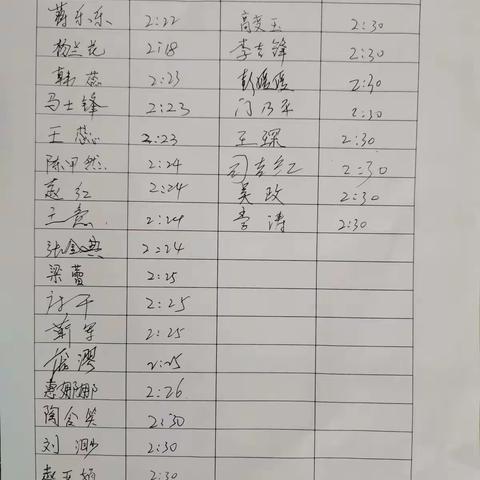 蒋乐乐 2:22 高变玉 2:30
杨兰花 2:18 李吉锋 2:30
韩蕊 2:23 彭媛媛 2:30
马士锋 2:23 门乃平 2:30
王蕊 2:23 王琛 2:30
陈甲然 2:24 司吉红 2:30
赵红 2:24 吴政 2:30
王意 2:24 李涛 2:30
2:24
梁蕾 2:25
许平 2:25
靳军 2:25
2:25
惠娜娜 2:26
陶会英 2:30
刘 2:30
2:30